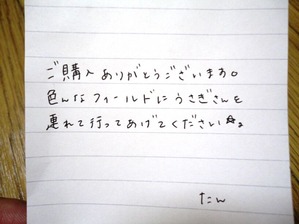 ご購入ありがとうございます。
色んなフィールドにうさぎさんを
連れて行ってあげてください☆。
たん